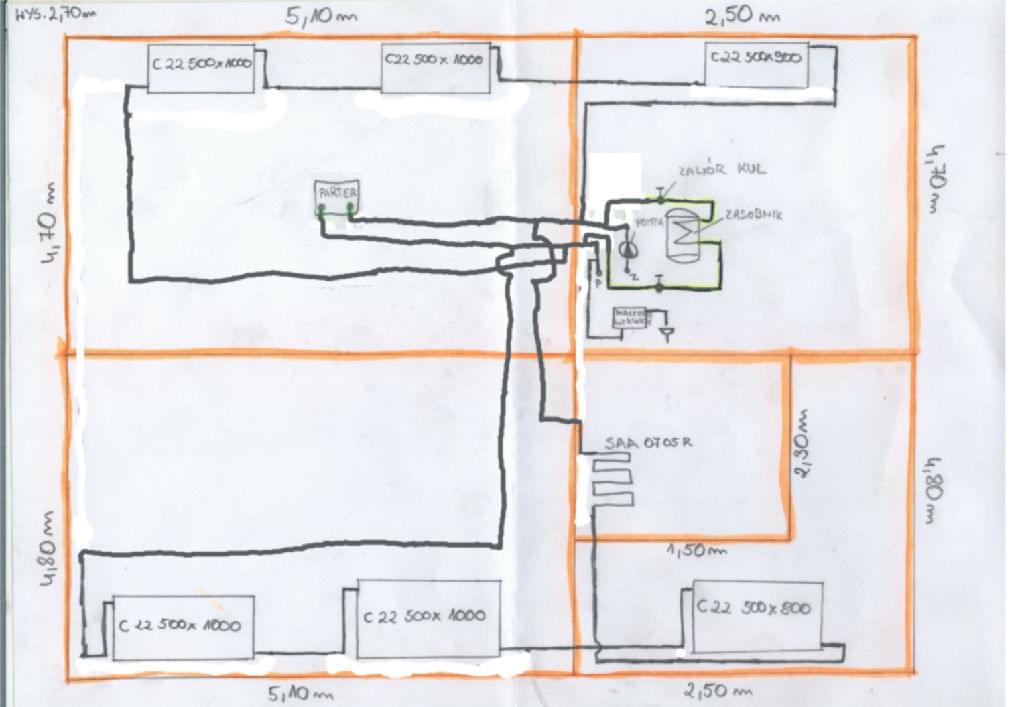 WYS. 2,70m
5,10 m
2,50 m
C 22 500x1000
C22 500x1000
C22 500x900
4,70 m
4,70 m
ZAWÓR KUL
PARTER
ZASOBNIK
POMPA
Z
P
SAA 0705R
2,30m
4,80m
4,80m
1,50m
C 22 500x1000
C 22 500x1000
C 22 500x800
5,10m
2,50m